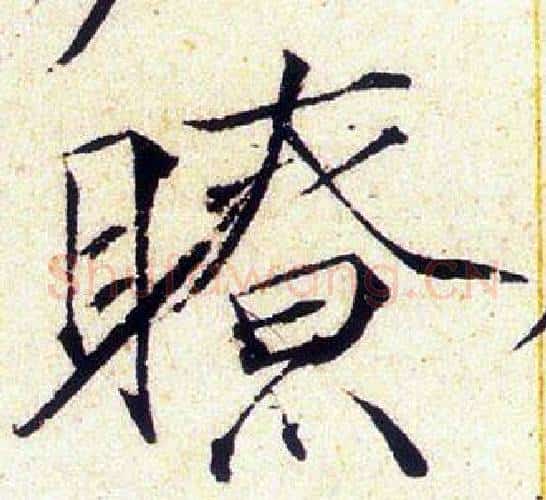 瞭
Shufawang.CN